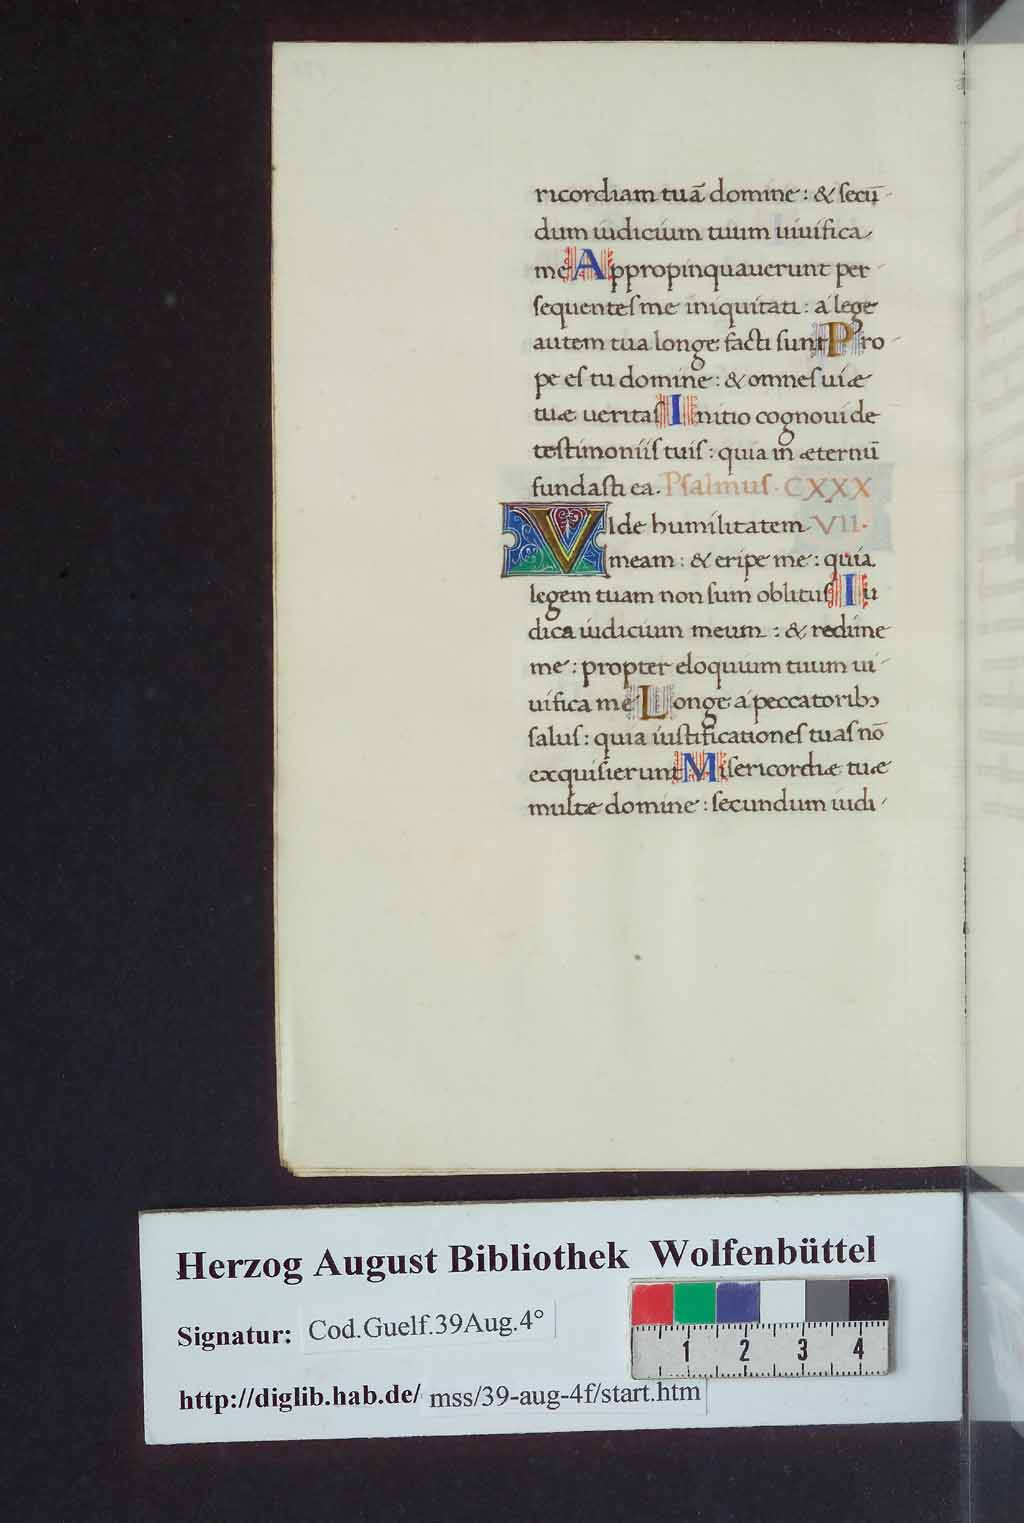 ricordiam tuā domine: & secū-
dum iudicium tuum uiuifica
me Appropinquauerunt per-
sequentes me iniquitati: a lege
autem tua longe facti sunt Pro-
pe es tu domine: & omnes uiæ
tuæ ueritas Initio cognoui de
testimoniis tuis: quia in æternū
fundasti ea. Psalmus. CXXX
VIde humilitatem VII.
meam: & eripe me: quia
legem tuam non sum oblitus Iu
dica iudicium meum: & redime
me: propter eloquium tuum ui-
uifica me Longe a peccatorib3
salus: quia iustificationes tuas nō
exquisierunt Misericordiæ tuæ
multæ domine: secundum iudi-
Herzog August Bibliothek Wolfenbüttel
Signatur: Cod.Guelf.39Aug.4°
http://diglib.hab.de/ mss/39-aug-4f/start.htm
1 2 3 4